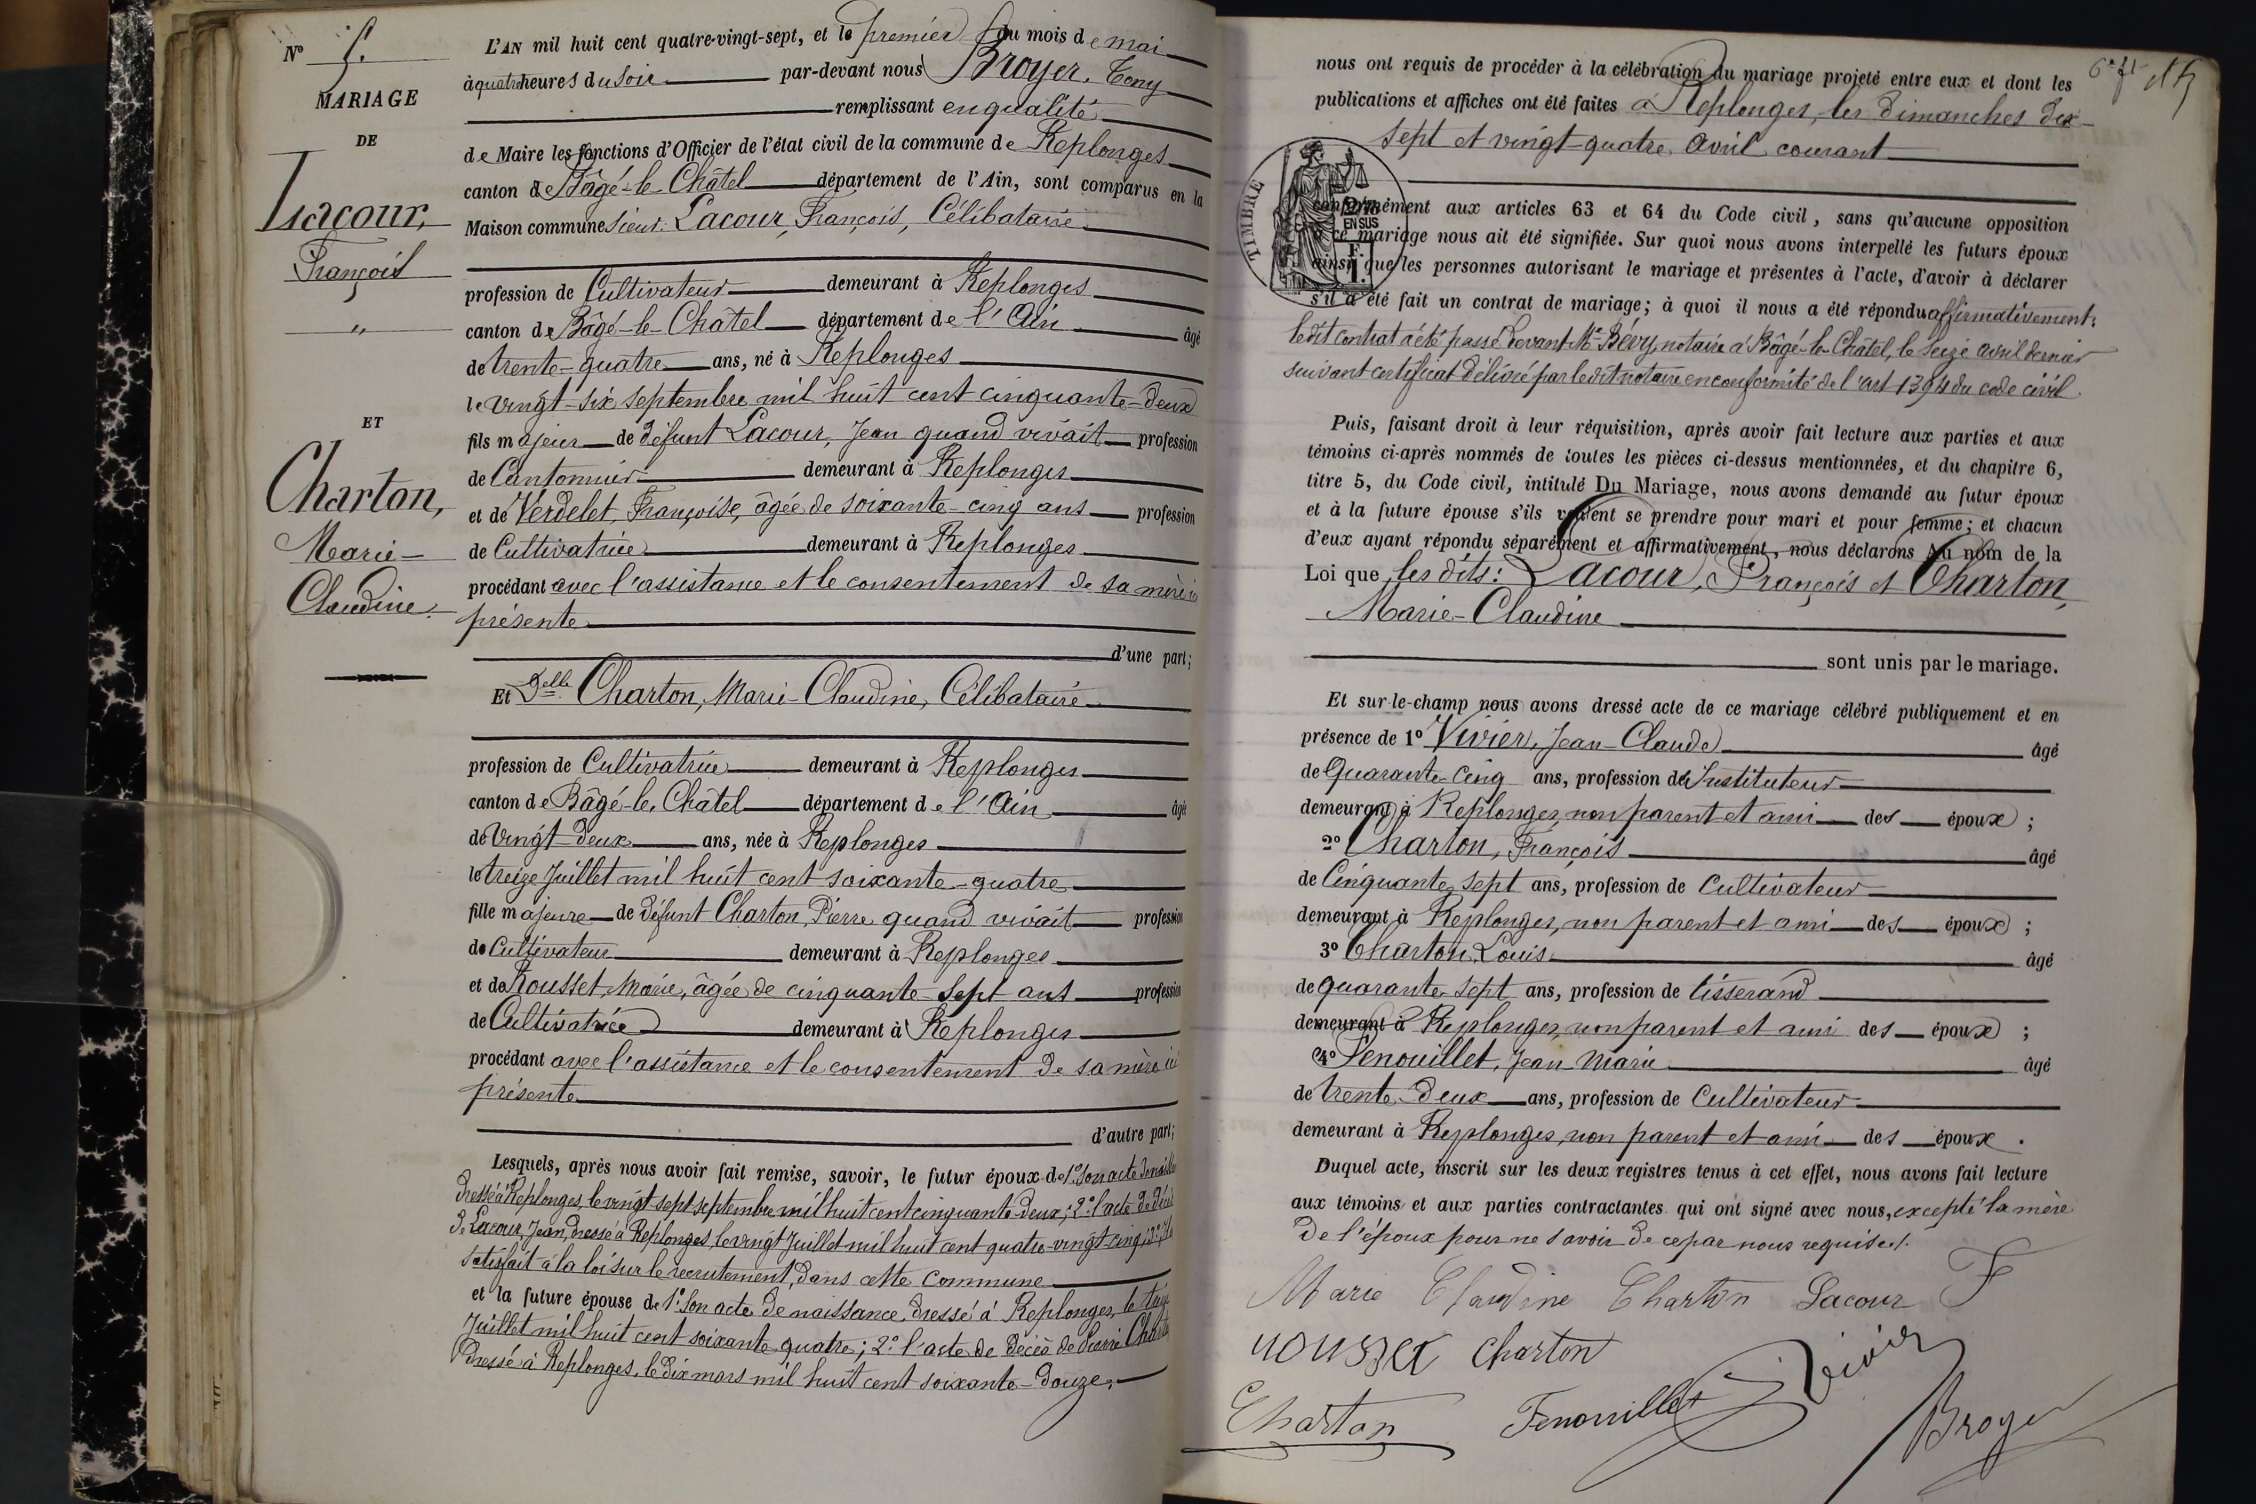 N° 5.
MARIAGE
DE
Lacour,
François
"
ET
Charton,
Marie-
Claudine.
L'AN mil huit cent quatre-vingt-sept, et le premier du mois de mai
à quatre heures du soir par-devant nous Broyer, Tony
remplissant en qualité
de Maire les fonctions d'Officier de l'état civil de la commune de Replonges
canton de Bâgé-le-Châtel département de l'Ain, sont comparus en la
Maison commune sieur: Lacour, François, Célibataire
profession de Cultivateur demeurant à Replonges
canton de Bâgé-le-Châtel département de l'Ain âgé
de trente-quatre ans, né à Replonges
le vingt-six septembre mil huit cent cinquante-deux
fils majeur de défunt Lacour, Jean quand vivait profession
de Cantonnier demeurant à Replonges
et de Verdelet, Françoise, âgée de soixante-cinq ans profession
de Cultivatrice demeurant à Replonges
procédant avec l'assistance et le consentement de sa mère ici
présente
d'une part;
Et Delle Charton, Marie-Claudine, Célibataire
profession de Cultivatrice demeurant à Replonges
canton de Bâgé-le-Châtel département de l'Ain âgé
de vingt-deux ans, née à Replonges
le treize Juillet mil huit cent soixante-quatre
fille majeure de défunt Charton, Pierre quand vivait profession
de Cultivateur demeurant à Replonges
et de Rousset, Marie, âgée de cinquante-sept ans profession
de Cultivatrice demeurant à Replonges
procédant avec l'assistance et le consentement de sa mère ici
présente
d'autre part;
Lesquels, après nous avoir fait remise, savoir, le futur époux de 1° son acte de naissance
dressé à Replonges, le vingt sept septembre mil huit cent cinquante-deux; 2° l'acte de décès
de Lacour, Jean, dressé à Replonges, le vingt Juillet mil huit cent quatre-vingt cinq; 3°
satisfait à la loi sur le recrutement, dans cette commune
et la future épouse de 1° son acte de naissance dressé à Replonges, le treize
Juillet mil huit cent soixante quatre; 2° l'acte de décès de Pierre Charton
dressé à Replonges, le dix mars mil huit cent soixante-douze,
nous ont requis de procéder à la célébration du mariage projeté entre eux et dont les
publications et affiches ont été faites à Replonges, les dimanches dix-
sept et vingt-quatre avril courant
TIMBRE
EN SUS
conformément aux articles 63 et 64 du Code civil, sans qu'aucune opposition
à ce mariage nous ait été signifiée. Sur quoi nous avons interpellé les futurs époux
ainsi que les personnes autorisant le mariage et présentes à l'acte, d'avoir à déclarer
s'il a été fait un contrat de mariage; à quoi il nous a été répondu affirmativement;
ledit contrat a été passé devant Me Bévy, notaire à Bâgé-le-Châtel, le seize avril dernier
suivant certificat délivré par ledit notaire en conformité de l'art 1394 du code civil.
Puis, faisant droit à leur réquisition, après avoir fait lecture aux parties et aux
témoins ci-après nommés de toutes les pièces ci-dessus mentionnées, et du chapitre 6,
titre 5, du Code civil, intitulé Du Mariage, nous avons demandé au futur époux
et à la future épouse s'ils veulent se prendre pour mari et pour femme; et chacun
d'eux ayant répondu séparément et affirmativement, nous déclarons Au nom de la
Loi que les dits: Lacour, François et Charton,
Marie-Claudine
sont unis par le mariage.
Et sur-le-champ nous avons dressé acte de ce mariage célébré publiquement et en
présence de 1° Vivier, Jean-Claude âgé
de Quarante-cinq ans, profession de Instituteur
demeurant à Replonges, non parent et ami des époux;
2° Charton, François âgé
de Cinquante sept ans, profession de Cultivateur
demeurant à Replonges, non parent et ami des époux;
3° Charton, Louis âgé
de quarante-sept ans, profession de tisserand
demeurant à Replonges, non parent et ami des époux;
4° Fenouillet, Jean Marie âgé
de trente-deux ans, profession de Cultivateur
demeurant à Replonges, non parent et ami des époux.
Duquel acte, inscrit sur les deux registres tenus à cet effet, nous avons fait lecture
aux témoins et aux parties contractantes qui ont signé avec nous, excepté la mère
de l'époux pour ne savoir de ce par nous requise.
Marie Claudine Charton Lacour F
rousset Charton Vivier
Charton Fenouillet Broyer